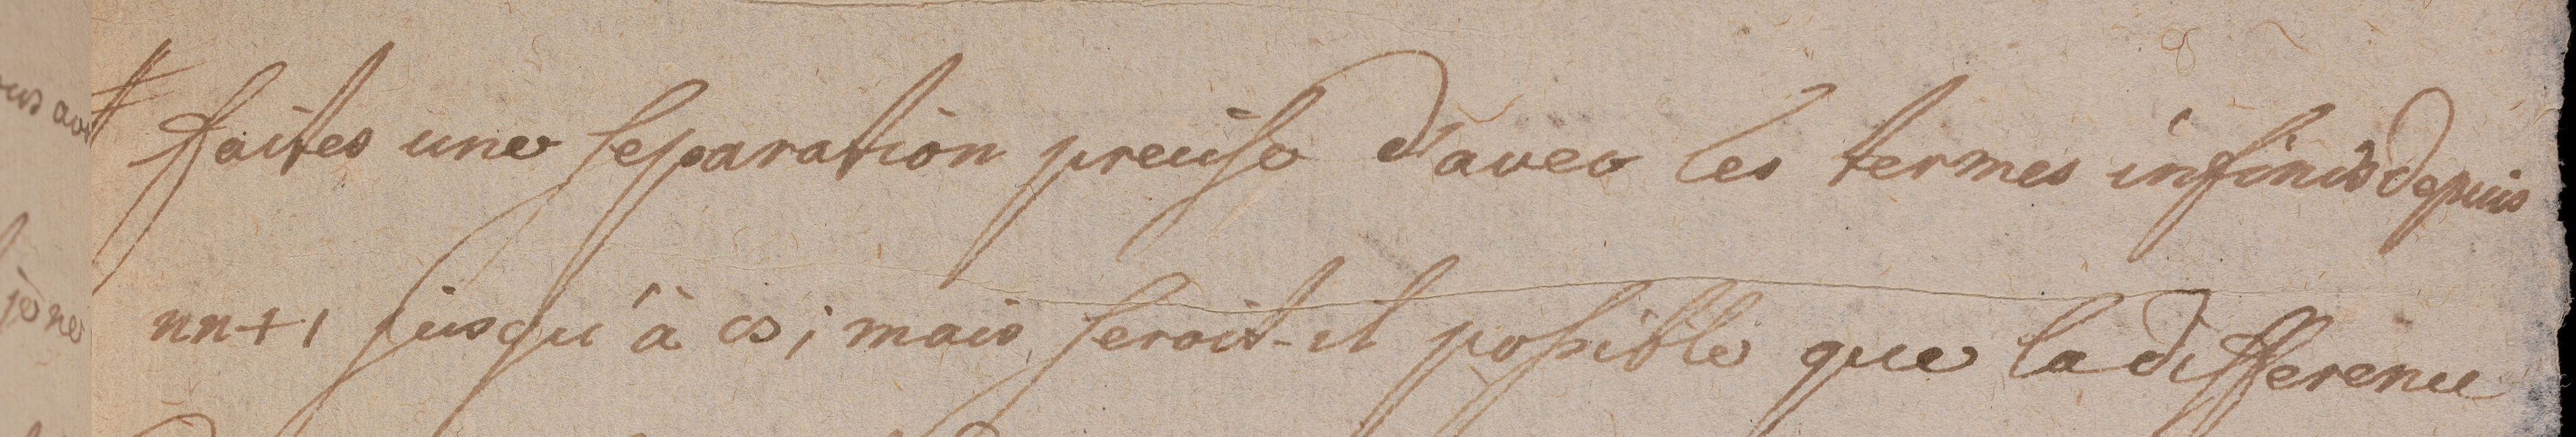 faites une separation precise d'avec les termes infinis depuis
nn+1 jusqu'à ∞; mais seroit-il possible que la difference